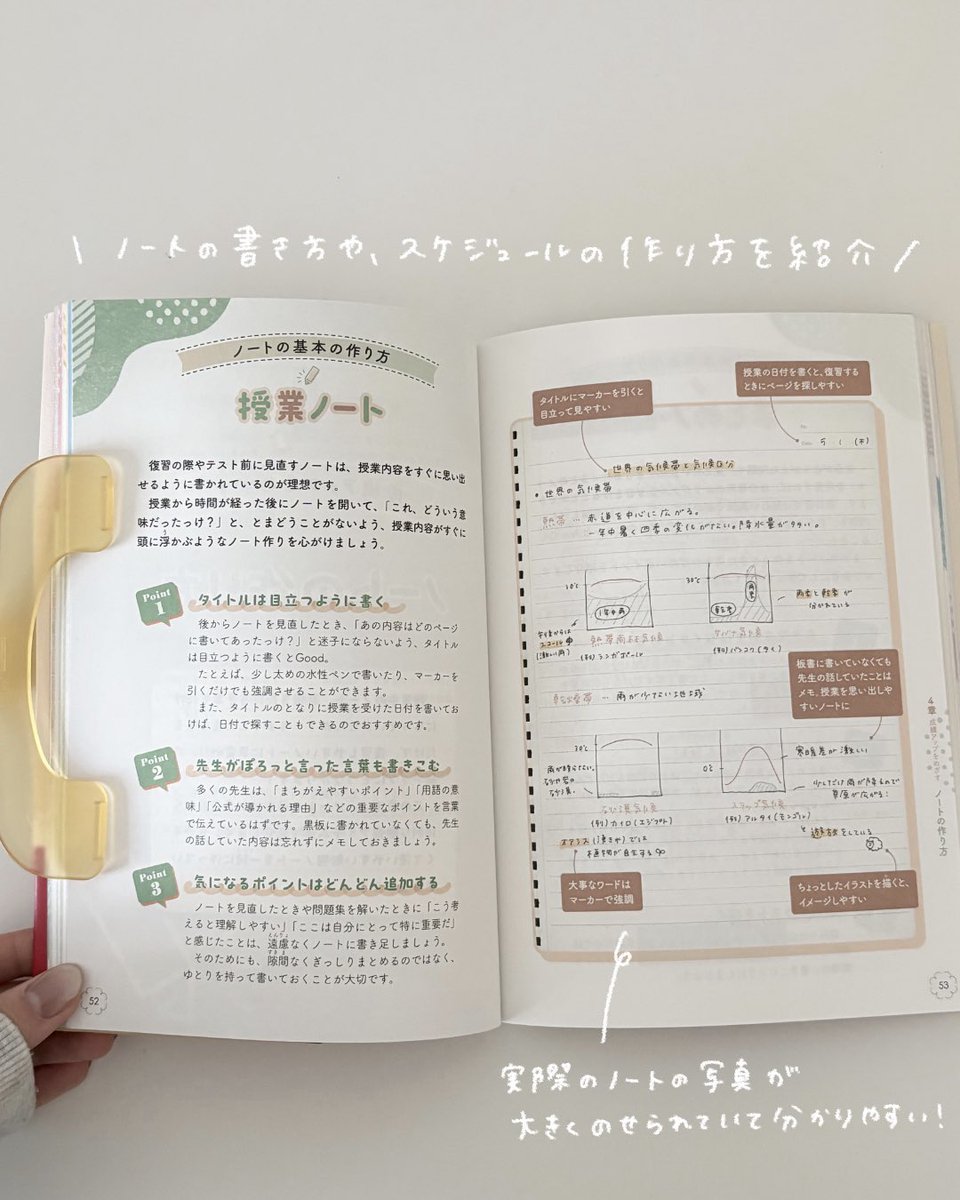 \ ノートの書き方や、スケジュールの作り方を紹介 /
ノートの基本の作り方
授業ノート
復習の際やテスト前に見直すノートは、授業内容をすぐに思い出
せるように書かれているのが理想です。
授業から時間が経った後にノートを開いて、「これ、どういう意
味だったっけ？」と、とまどうことがないよう、授業内容がすぐに
頭に浮かぶようなノート作りを心がけましょう。
Point
1
タイトルは目立つように書く
後からノートを見直したとき、「あの内容はどのページ
に書いてあったっけ？」と迷子にならないよう、タイトル
は目立つように書くとGood。
たとえば、少し太めの水性ペンで書いたり、マーカーを
引くだけでも強調させることができます。
また、タイトルのとなりに授業を受けた日付を書いてお
けば、日付で探すこともできるのでおすすめです。
Point
2
先生がぽろっと言った言葉も書きこむ
多くの先生は、「まちがえやすいポイント」「用語の意
味」「公式が導かれる理由」などの重要なポイントを言葉
で伝えているはずです。黒板に書かれていなくても、先生
の話していた内容は忘れずにメモしておきましょう。
Point
3
気になるポイントはどんどん追加する
ノートを見直したときや問題集を解いたときに「こう考
えると理解しやすい」「ここは自分にとって特に重要だ」
と感じたことは、遠慮なくノートに書き足しましょう。
そのためにも、隙間なくぎっしりまとめるのではなく、
ゆとりを持って書いておくことが大切です。
52
タイトルにマーカーを引くと
目立って見やすい
授業の日付を書くと、復習する
ときにページを探しやすい
5 1 (木)
世界の気候帯と気候区分
• 世界の気候帯
熱帯 … 赤道を中心に広がる。
一年中暑く四季の変化がない。降水量が多い。
30℃
1年中雨
30℃
乾季
雨季
雨季と乾季が
分かれている
午後からは
スコール
(激しい雨)
熱帯雨林気候
(例) シンガポール
サバナ気候
(例) バンコク(タイ)
板書に書いていなくても
先生の話していたことは
メモ。授業を思い出しや
すいノートに
乾燥帯 … 雨が少ない地域
30℃
雨が降らない。
砂や岩の
砂漠。
0℃
寒暖差が激しい
少しだけ雨が降るので
草原が広がる!
砂漠気候
(例) カイロ(エジプト)
ステップ気候
(例) アルタイ(モンゴル)
遊牧をしている
オアシス (湧き水) では
植物が自生する
大事なワードは
マーカーで強調
ちょっとしたイラストを描くと、
イメージしやすい
4章 成績アップをめざす ノートの作り方
53
実際のノートの写真が
大きくのせられていて分かりやすい!